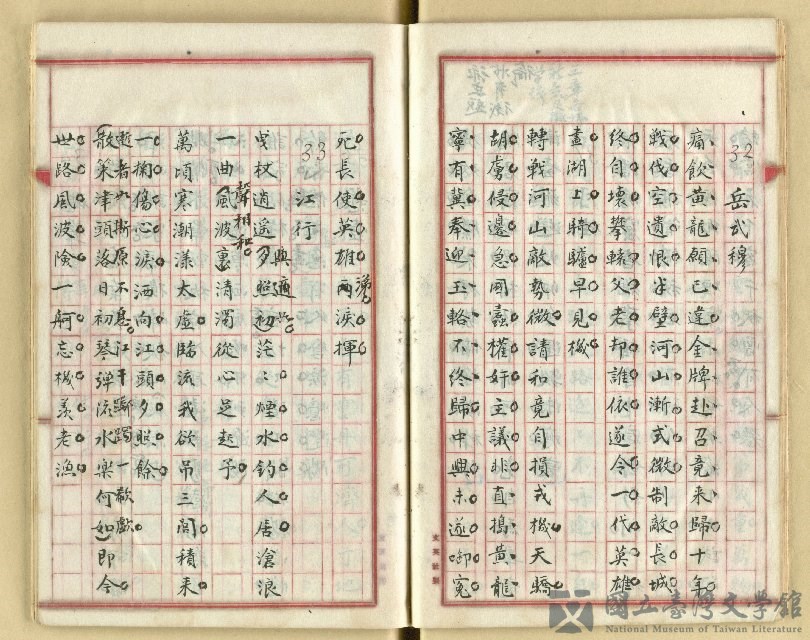 32 岳武穆
痛飲黃龍願已違金牌赴召竟來歸十年
戰伐空遺恨半壁河山漸式微制敵長城
終自壞攀轅父老却誰依遂令一代英雄
畫湖上騎驢早見機
轉戰河山敵勢微請和竟自損戎機天驕
胡虜侵邊急國蠹權奸主議非直搗黃龍
寧有冀奉迎玉輅不終歸中興未遂啣冤
死長使英雄兩淚揮
33 江行
曳杖逍遥夕照初茫々煙水釣人居滄浪
興適
一曲風波裏清濁從心足起予
聲相和
萬頃寒潮漾太虛臨流我欲吊三閭積來
一掬傷心淚洒向江頭夕照餘
逝者如斯原不息江干躑躅一欷歔
散策津頭落日初琴彈流水樂何如即今
世路風波險一舸忘機羡老漁
國立臺灣文學館
National Museum of Taiwan Literature